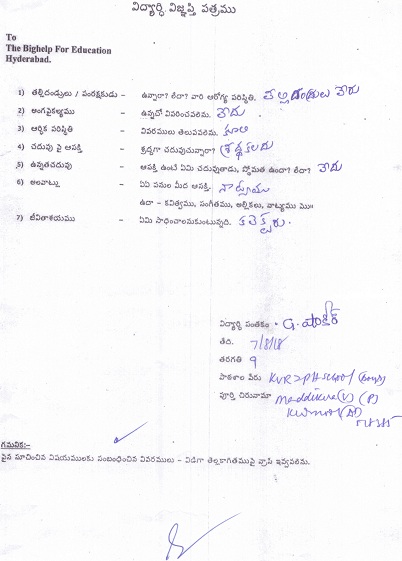 విద్యార్ధి విజ్ఞప్తి పత్రము
To
The Bighelp For Education
Hyderabad.
1) తల్లిదండ్రులు / సంరక్షకుడు – ఉన్నారా? లేదా? వారి ఆరోగ్య పరిస్థితి. తల్లిదండ్రులు లేరు
2) అంగవైకల్యము – ఉన్నదో వివరించవలెను. లేదు
3) ఆర్ధిక పరిస్థితి – వివరములు తెలుపవలెను. కూలి
4) చదువు పై ఆసక్తి – శ్రద్ధగా చదువుచున్నారా? శ్రద్ధకలదు
5) ఉన్నతచదువు – ఆసక్తి ఉంటే ఏమి చదువుతాడు, స్తోమత ఉందా? లేదా? లేదు
6) అలవాట్లు – ఏఏ పనుల మీద ఆసక్తి.
ఉదా – కవిత్వము, సంగీతము, అల్లికలు, నాట్యము మొ॥
7) జీవితాశయము – ఏమి సాధించాలనుకుంటున్నది. కలెక్టరు.
విద్యార్ధి సంతకం - G.
తేది. 7/8/18
తరగతి 9
పాఠశాల పేరు KVR ZPH School (Boys)
పూర్తి చిరునామా Maddikera (V) (P)
Kurnool (Dt)
గమనిక:-
పైన సూచించిన విషయములకు సంబంధించిన వివరములు – విడిగా తెల్లకాగితముపై వ్రాసి ఇవ్వవలెను.